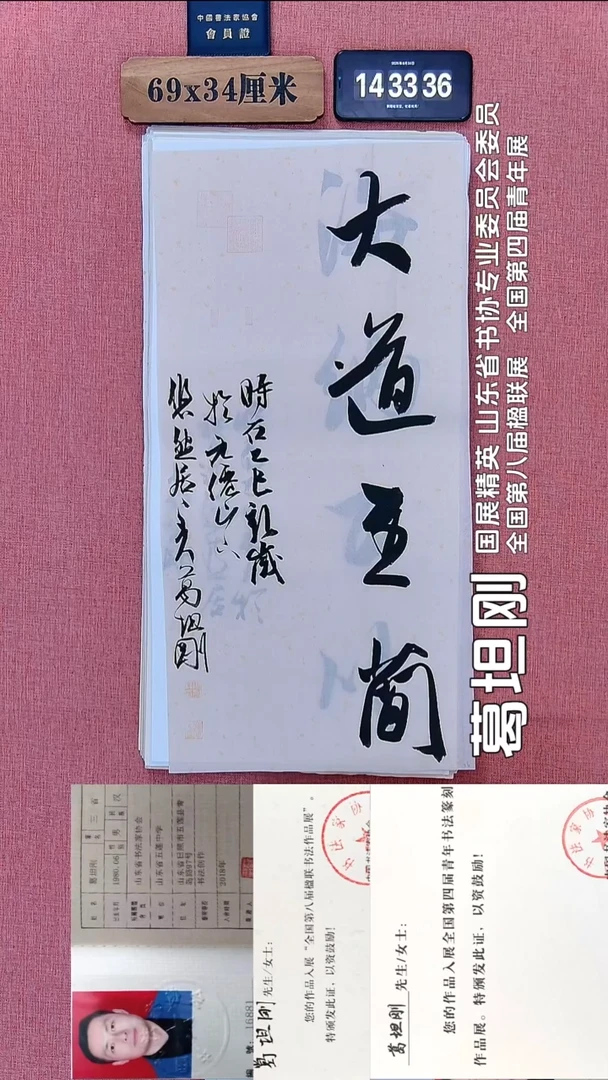 中國書法家協會
會員證
69x34厘米
14 33 36
大道至简
時在乙巳新歲
於九僊山下
悠然居主人葛坦剛
国展精英 山东省书协专业委员会委员
全国第八届楹联展 全国第四届青年展
葛坦刚
葛坦刚
1980.06
男
汉
山东省书法家协会
山东省五莲中学
书法创作
2018年
16881
葛坦刚 先生/女士：
您的作品入展“全国第八届楹联书法作品展”。
特颁发此证，以资鼓励！
葛坦刚 先生/女士：
您的作品入展全国第四届青年书法篆刻
作品展。特颁发此证，以资鼓励！